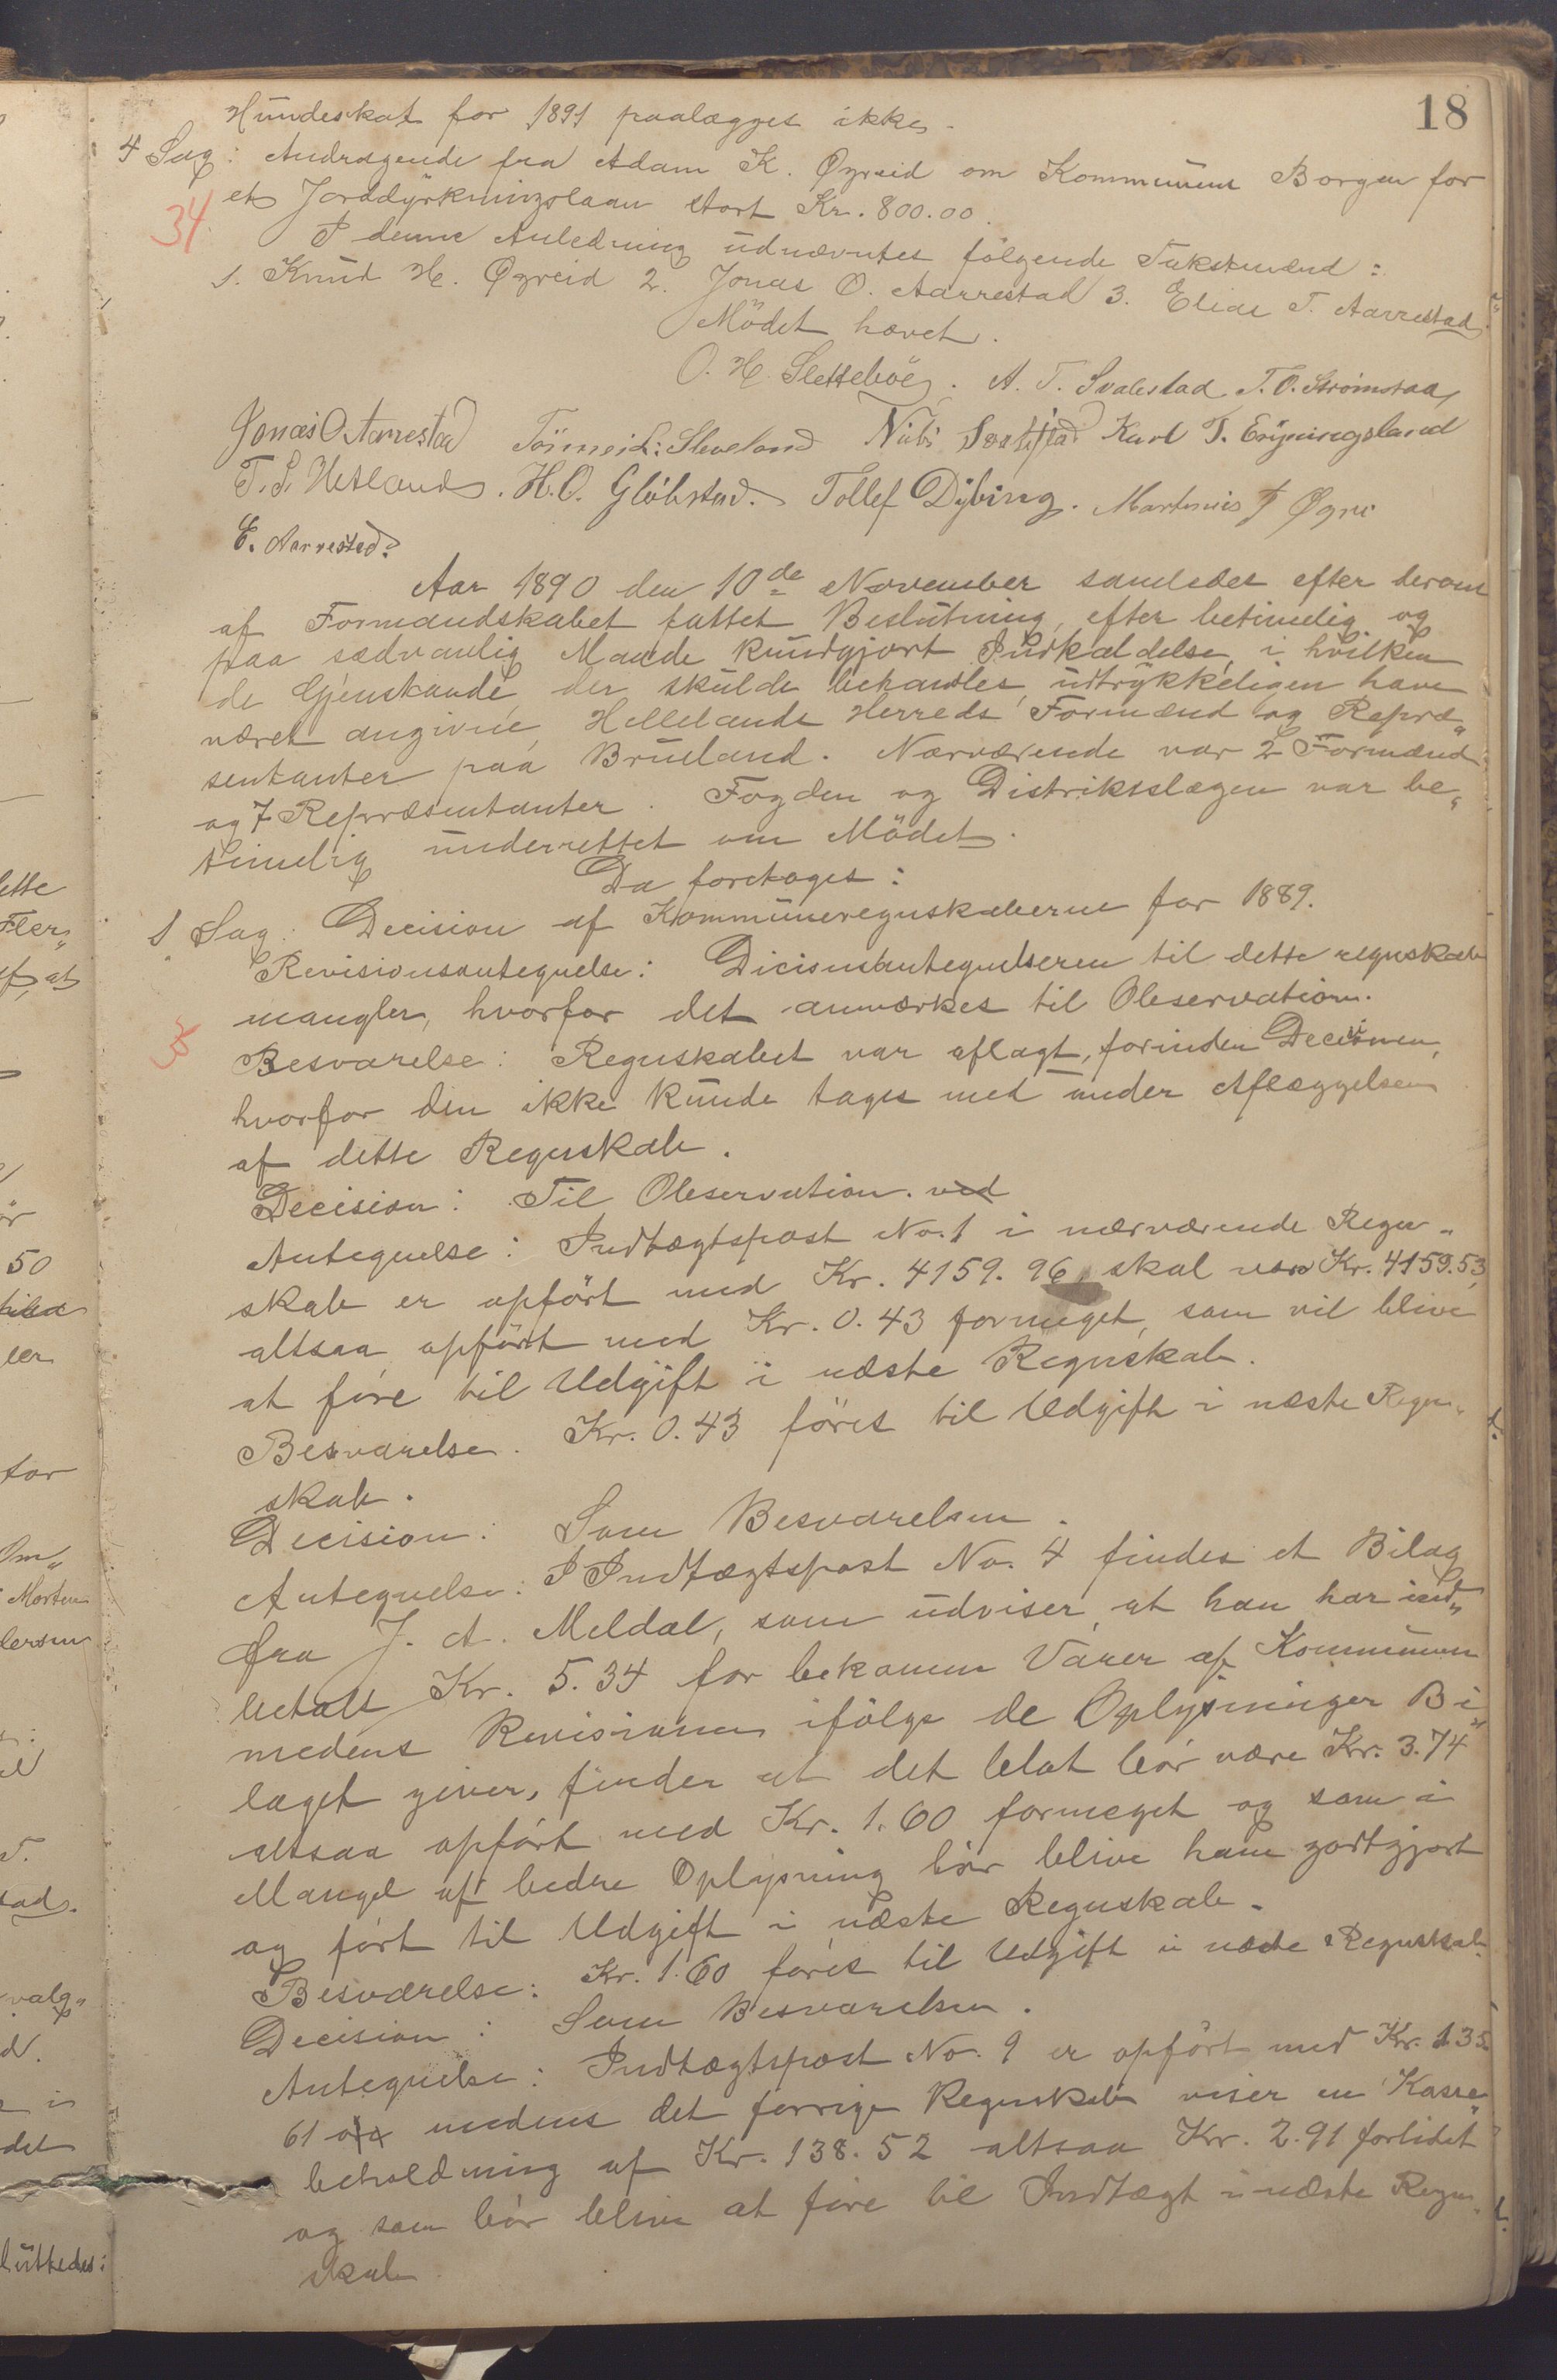 18
Hundeskat for 1891 paalægges ikke.
4 Sag: Andragende fra Adam K. Øgreid om Kommunens Borgen for
et Jorddyrkningslaan stort Kr. 800.00.
34
I denne Anledning udnævntes følgende Takstmænd:
1. Knud H. Øgreid 2. Jonas O. Aarrestad 3. Elias T. Aarrestad.
Mödet hævet.
O. H. Sletteböe. A. T. Svalestad T. O. Strömstad
Jonas O Aarrestad Sleveland Karl T. Eryningsland
T. S. Hetland. H. O. Glöbstad. Tollef Dybing. Martinius T Øgre
E. Aarrestad.
Aar 1890 den 10de November samledes efter derom
af Formandskabet fattet Beslutning, efter betimelig og
paa sædvanlig Maade kundgjort Indkaldelse, i hvilken
de Gjenstande, der skulde behandles, udtrykkeligen have
været angivne, Hellelands Herreds Formænd og Repræ„
sentanter paa Brueland. Nærværende var 2 Formænd
og 7 Repræsentanter. Fogden og Distriktslægen var be„
timelig underrettet om Mödet.
Da foretoges:
1 Sag: Decision af Kommuneregnskaberne for 1889.
Revisionsantegnelse: Dicisionsantegnelserne til dette regnskab
mangler, hvorfor det anmærkes til Observation.
35
Besvarelse: Regnskabet var aflagt, forinden Decisionen,
hvorfor den ikke kunde tages med under Aflæggelsen
af dette Regnskab.
Decision: Til Observation. ved
Antegnelse: Indtægtspost No. 1 i nærværende Regn„
skab er opført med Kr. 4159.96, skal være Kr. 4159.53,
altsaa opført med Kr. 0.43 formeget, som vil blive
at före til Udgift i næste Regnskab.
Besvarelse. Kr. 0.43 föres til Udgift i næste Regn„
skab.
Decision: Som Besvarelsen.
Antegnelse: I Indtægtspost No. 4 findes et Bilag
fra J. A. Meldal, som udviser, at han har ind„
betalt Kr. 5.34 for bekomne Varer af Kommunen
medens Revisionen ifölge de Oplysninger Bi„
laget giver, finder at det blot bör være Kr. 3.74
altsaa opfört med Kr. 1.60 formeget og som i
Mangel af bedre Oplysning bör blive ham godtgjort
og fört til Udgift i næste Regnskab.
Besvarelse: Kr. 1.60 föres til Udgift i næste Regnskab.
Decision: Som Besvarelsen.
Antegnelse: Indtægtspost No. 9 er opfört med Kr. 135.
61 medens det forrige Regnskab viser en Kasse„
beholdning af Kr. 138.52 altsaa Kr. 2.91 forlidet
og som bör blive at före til Indtægt i næste Regn„
skab